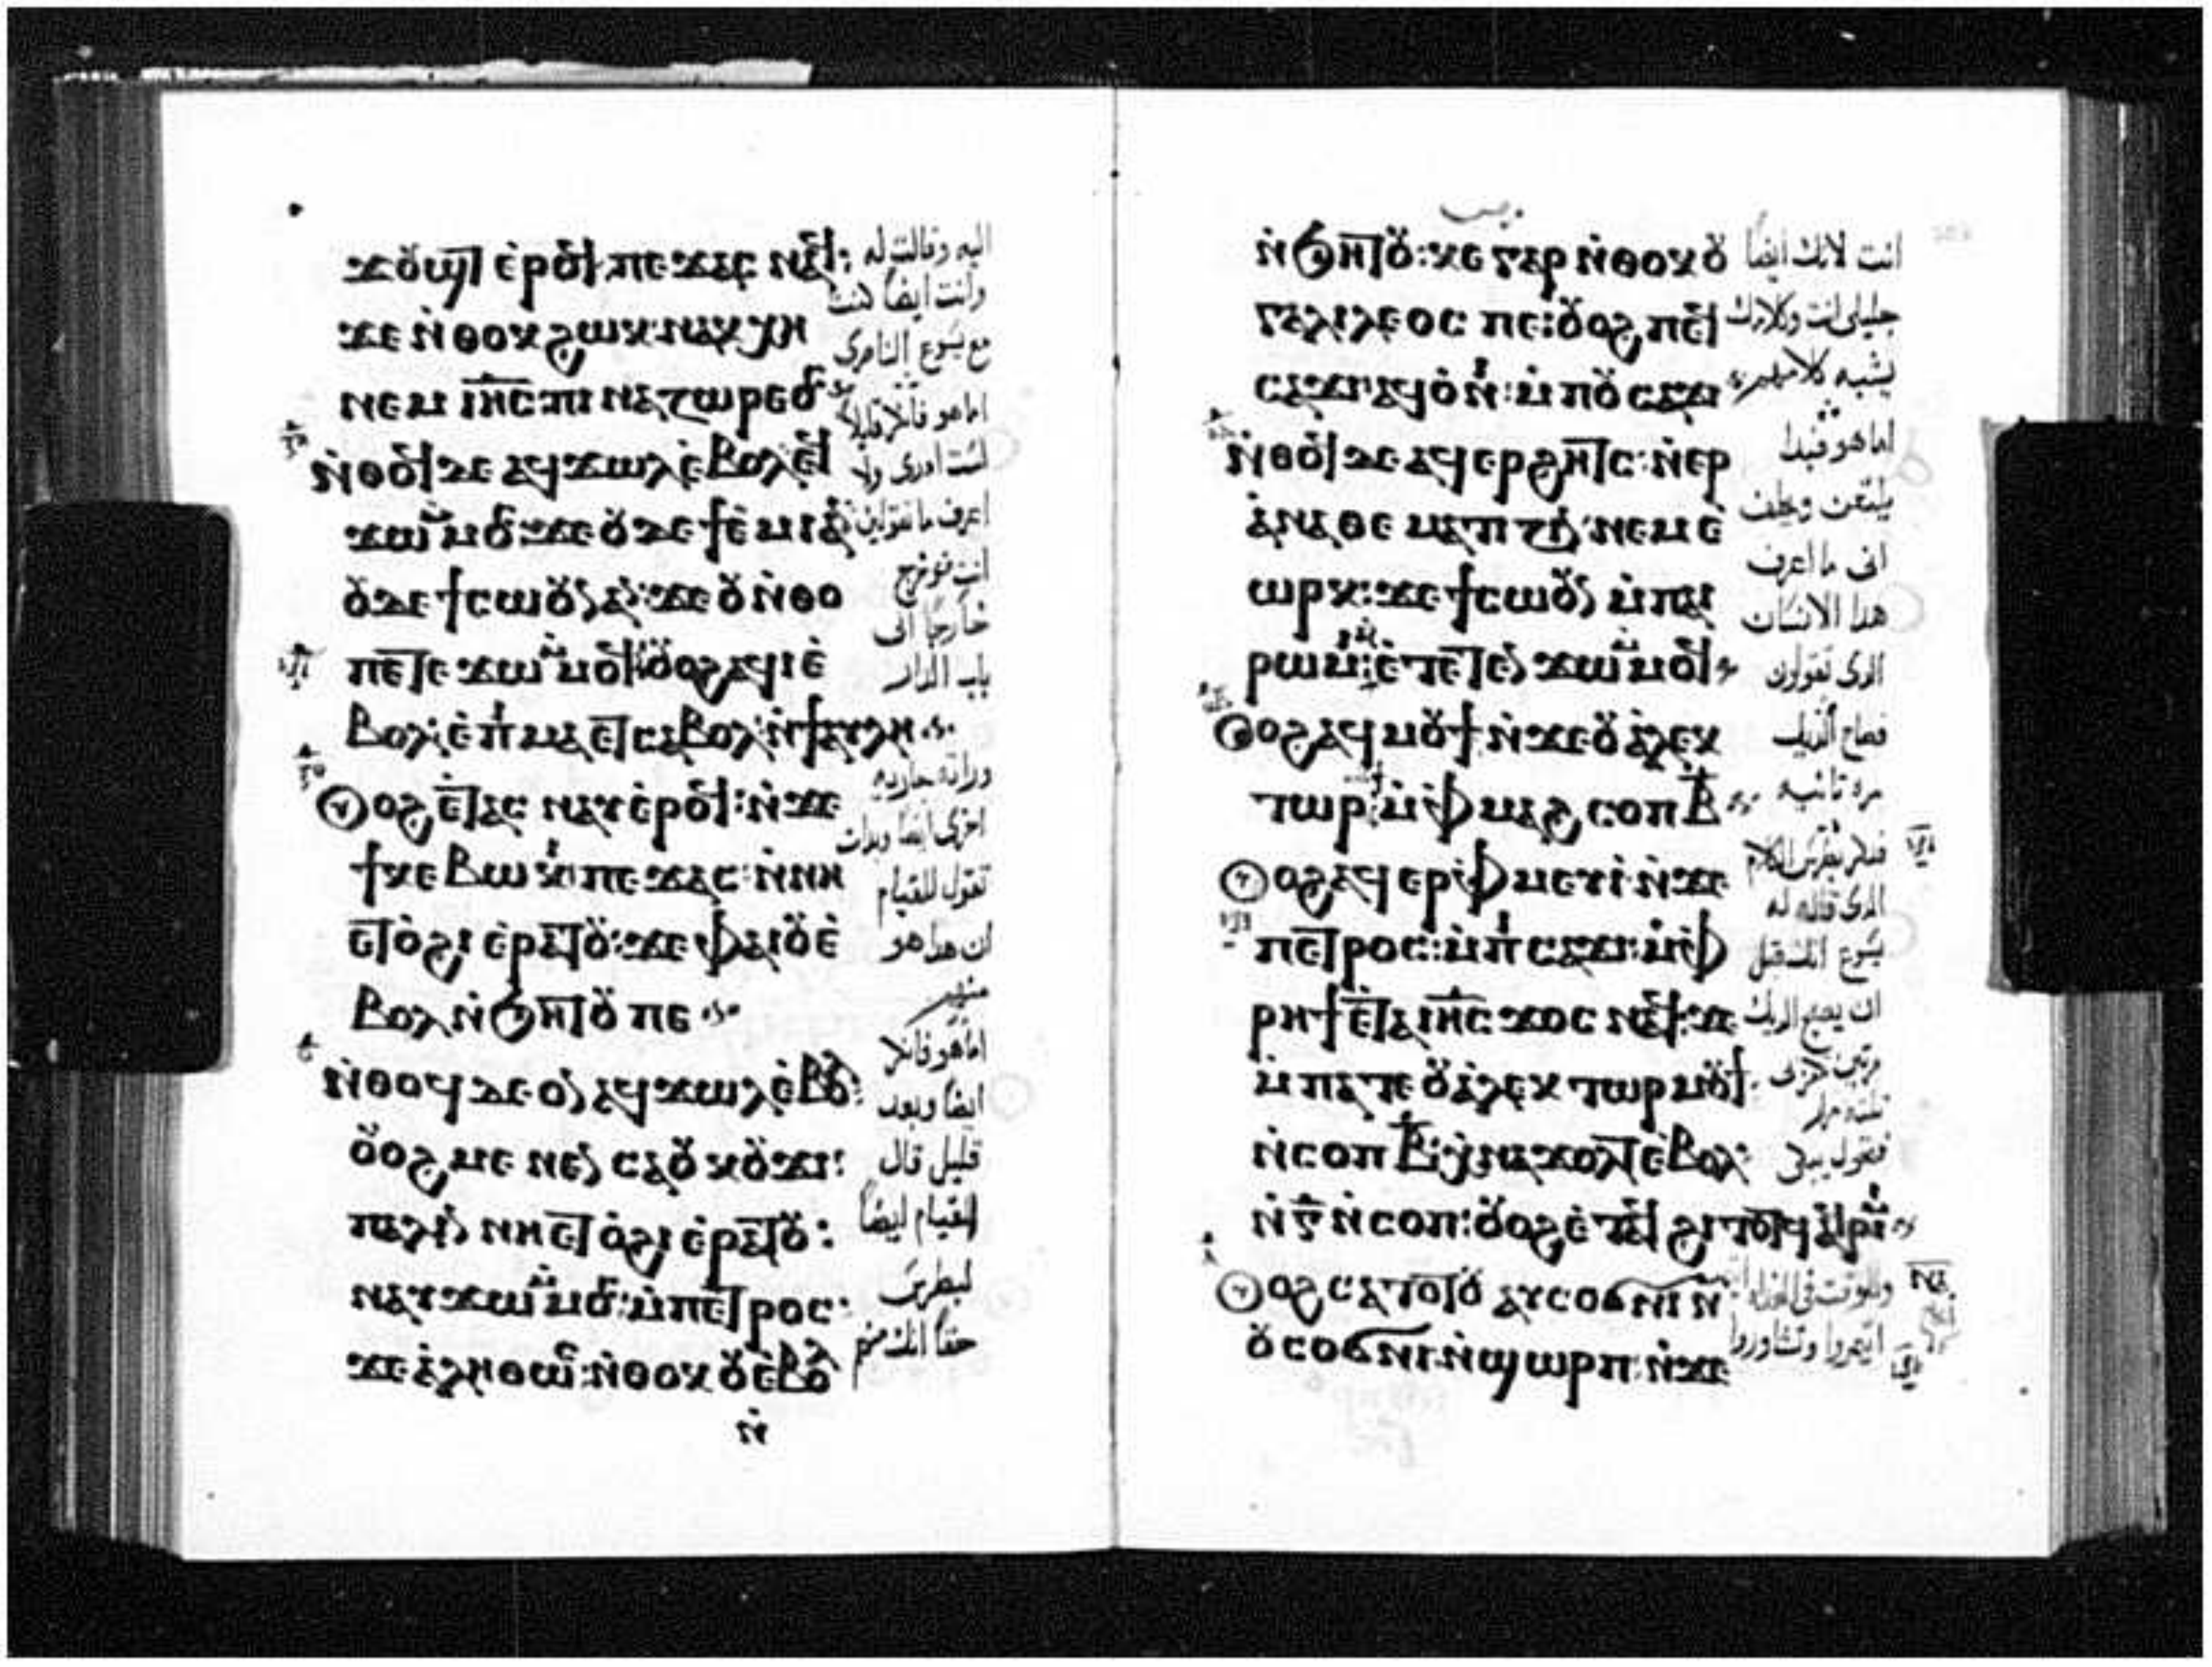 ϫⲟ̈ϣⲧ ⲉ̀ⲣⲟϥ ⲡⲉϫⲁⲥ ⲛⲁϥ:
ϫⲉ ⲛ̀ⲑⲟⲕ ϩⲱⲕ ⲛⲁⲕⲭⲏ
ⲛⲉⲙ ⲓⲏ̅ⲥ̅ ⲡⲓ ⲛⲁⲍⲱⲣⲉⲟⲥ
ⲛ̀ⲑⲟϥ ⲇⲉ ⲁϥϫⲱⲗ ⲉ̀ⲃⲟⲗ ⲉϥ
ϫⲱ ⲙ̀ⲙⲟⲥ ϫⲉ ⲟ̈ⲇⲉ ϯⲉ̀ⲙⲓ ⲁⲛ
ⲟ̈ⲇⲉ ϯⲥⲱⲟ̈ⲛ ⲁⲛ ϫⲉ ⲟ̈ ⲛ̀ⲑⲟ
ⲡⲉⲧⲉ ϫⲱ ⲙ̀ⲙⲟϥ ⲟ̈ⲟϩ ⲁϥⲓ ⲉ̀
ⲃⲟⲗ ⲉ̀ⲡⲓⲙⲁ ⲉⲧⲥⲁⲃⲟⲗ ⲛ̀ϯⲁⲩⲗⲏ
ⲟ̈ⲟϩ ⲉ̀ⲧⲁⲥ ⲛⲁⲩ ⲉ̀ⲣⲟϥ: ⲛ̀ϫⲉ
ϯⲕⲉ ⲃⲱⲕⲓ ⲡⲉϫⲁⲥ ⲛ̀ⲛⲏ
ⲉⲧⲟ̀ϩⲓ ⲉ̀ⲣⲁⲧⲟ̈: ϫⲉ ⲫⲁⲓ ⲟ̈ⲉ̀
ⲃⲟⲗ ⲛ̀ϧⲏⲧⲟ̈ ⲡⲉ
ⲛ̀ⲑⲟϥ ⲇⲉ ⲟⲛ ⲁϥϫⲱⲗ ⲉ̀ⲃⲟⲗ:
ⲟ̈ⲟϩ ⲙⲉⲛⲉⲛⲥⲁ ⲟ̈ⲕⲟ̈ϫⲓ:
ⲡⲁⲗⲓⲛ ⲛⲏ ⲉⲧⲟ̀ϩⲓ ⲉ̀ⲣⲁⲧⲟ̈:
ⲛⲁⲩϫⲱ ⲙ̀ⲙⲟⲥ: ⲙ̀ⲡⲉⲧⲣⲟⲥ
ϫⲉ ⲁ̀ⲗⲏⲑⲱⲥ: ⲛ̀ⲑⲟⲕ ⲟ̈ⲉ̀ⲃⲟⲗ
ⲛ̀
اليه وقالت له
وانت ايضا كنت
مع يسوع الناصرى
لست ادرى ولا
اعرف ما تقولين
خارجا الى
باب الدار
وراته جاريه
اخرى ايضا وبدات
تقول للقيام
ان هذا هو
منهم
ايضا وبعد
قليل قال
القيام ايضا
لبطرس
حقا انك منهم
ⲛ̀ϧⲏⲧⲟ̈: ϫⲉ ⲅⲁⲣ ⲛ̀ⲑⲟⲕ ⲟ̈
ⲅⲁⲗⲓⲗⲉⲟⲥ ⲡⲉ: ⲟ̈ⲟϩ ⲡⲉⲕ
ⲥⲁϫⲓ ⲁϥⲟ̀ⲛⲓ: ⲙ̀ⲡⲟ̈ⲥⲁϫⲓ
ⲛ̀ⲑⲟϥ ⲇⲉ ⲁϥⲉⲣϩⲏⲧⲥ: ⲛ̀ⲉⲣ
ⲁ̀ⲛⲁⲑⲉⲙⲁⲧⲓⲍⲓⲛ: ⲛⲉⲙ ⲉ̀
ⲱⲣⲕ: ϫⲉ ϯⲥⲱⲟ̈ⲛ ⲙ̀ⲡⲁⲓ
ⲣⲱⲙⲓ ⲁⲛ: ⲉ̀ⲧⲉⲧⲉⲛϫⲱ ⲙ̀ⲙⲟϥ
ⲟ̈ⲟϩ ⲁϥⲙⲟ̈ϯ ⲛ̀ϫⲉ ⲟ̈ⲁ̀ⲗⲉⲕ
ⲧⲱⲣ: ⲙ̀ⲫⲙⲁϩ ⲥⲟⲡ ⲃ̅
ⲟ̈ⲟϩ ⲁϥⲉⲣⲫⲙⲉⲩⲓ ⲛ̀ϫⲉ
ⲡⲉⲧⲣⲟⲥ: ⲙ̀ⲡⲓⲥⲁϫⲓ: ⲙ̀ⲫ
ⲣⲏϯ ⲉ̀ⲧⲁ ⲓⲏ̅ⲥ̅ ϫⲟⲥ ⲛⲁϥ: ϫⲉ
ⲙ̀ⲡⲁⲧⲉ ⲟ̈ⲁ̀ⲗⲉⲕⲧⲱⲣ ⲙⲟ̈ϯ
ⲛ̀ⲥⲟⲡ ⲃ̅: ⲭⲛⲁϫⲟⲗⲧ ⲉ̀ⲃⲟⲗ
ⲛ̀ⲅ̅ ⲛ̀ⲥⲟⲡ: ⲟ̈ⲟϩ ⲉ̀ⲧⲁϥϩⲓⲧⲟⲧϥ ⲁϥⲣⲓⲙⲓ
ⲟ̈ⲟϩ ⲥⲁⲧⲟⲧⲟ̈ ⲁⲩⲥⲟϭⲛⲓ ⲛ̀
ⲟ̈ⲥⲟϭⲛⲓ ⲛ̀ϣⲱⲣⲡ: ⲛ̀ϫⲉ
انت لانك ايضا
جليلى انت وكلامك
يشبه كلامهم
اما هو فبدا
يلعن ويحلف
انى ما اعرف
هذا الانسان
الذى تقولون
فصاح الديك
مره ثانيه
فذكر بطرس الكلام
الذى قاله له
يسوع انك قبل
ان يصيح الديك
مرتين تنكرنى